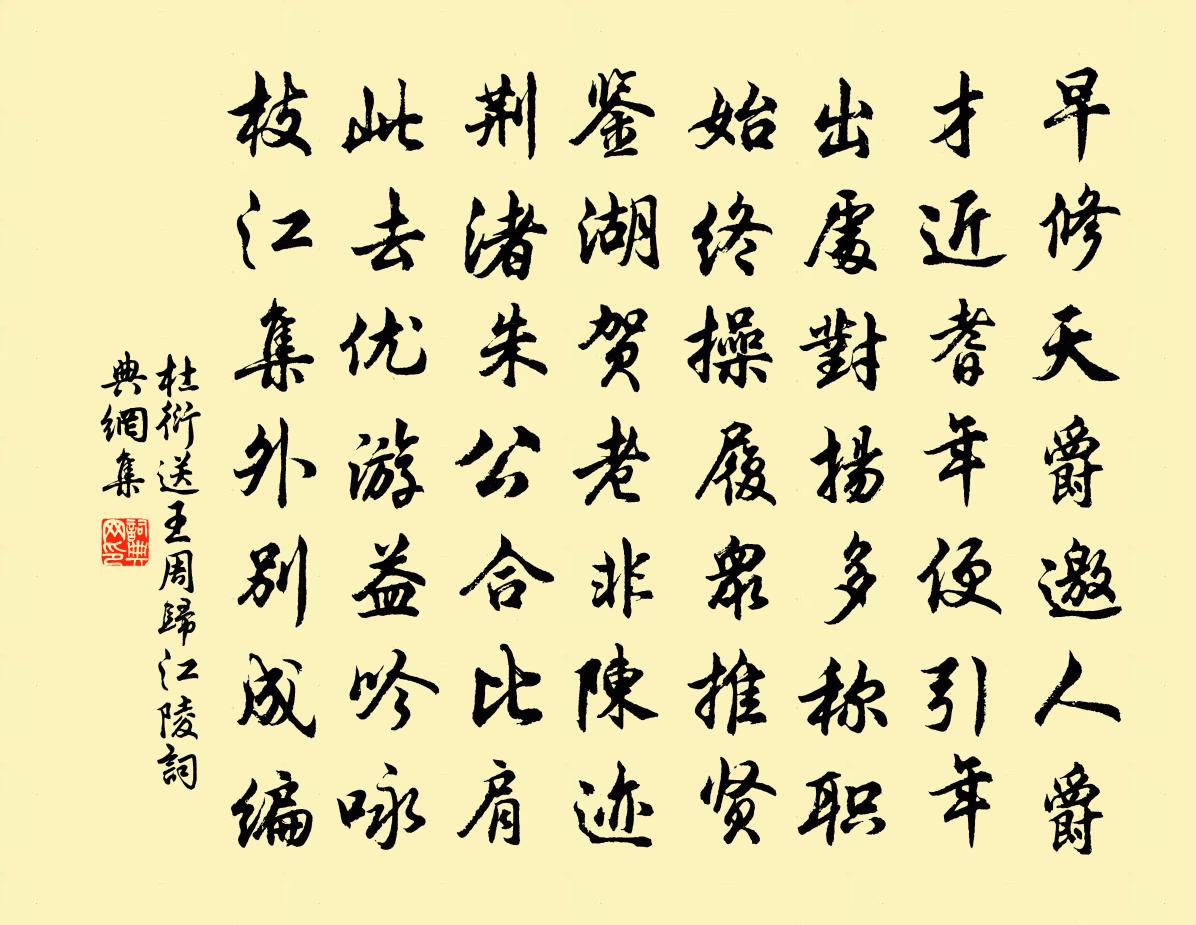 早修天爵邀人爵
才近耆年便引年
出處對揚多称职
始终操履眾推贤
鉴湖贺老非陳迹
荆渚朱公合比肩
此去优游益吟咏
枝江集外别成编
杜衍送王周歸江陵詞
典網集
詞典网印